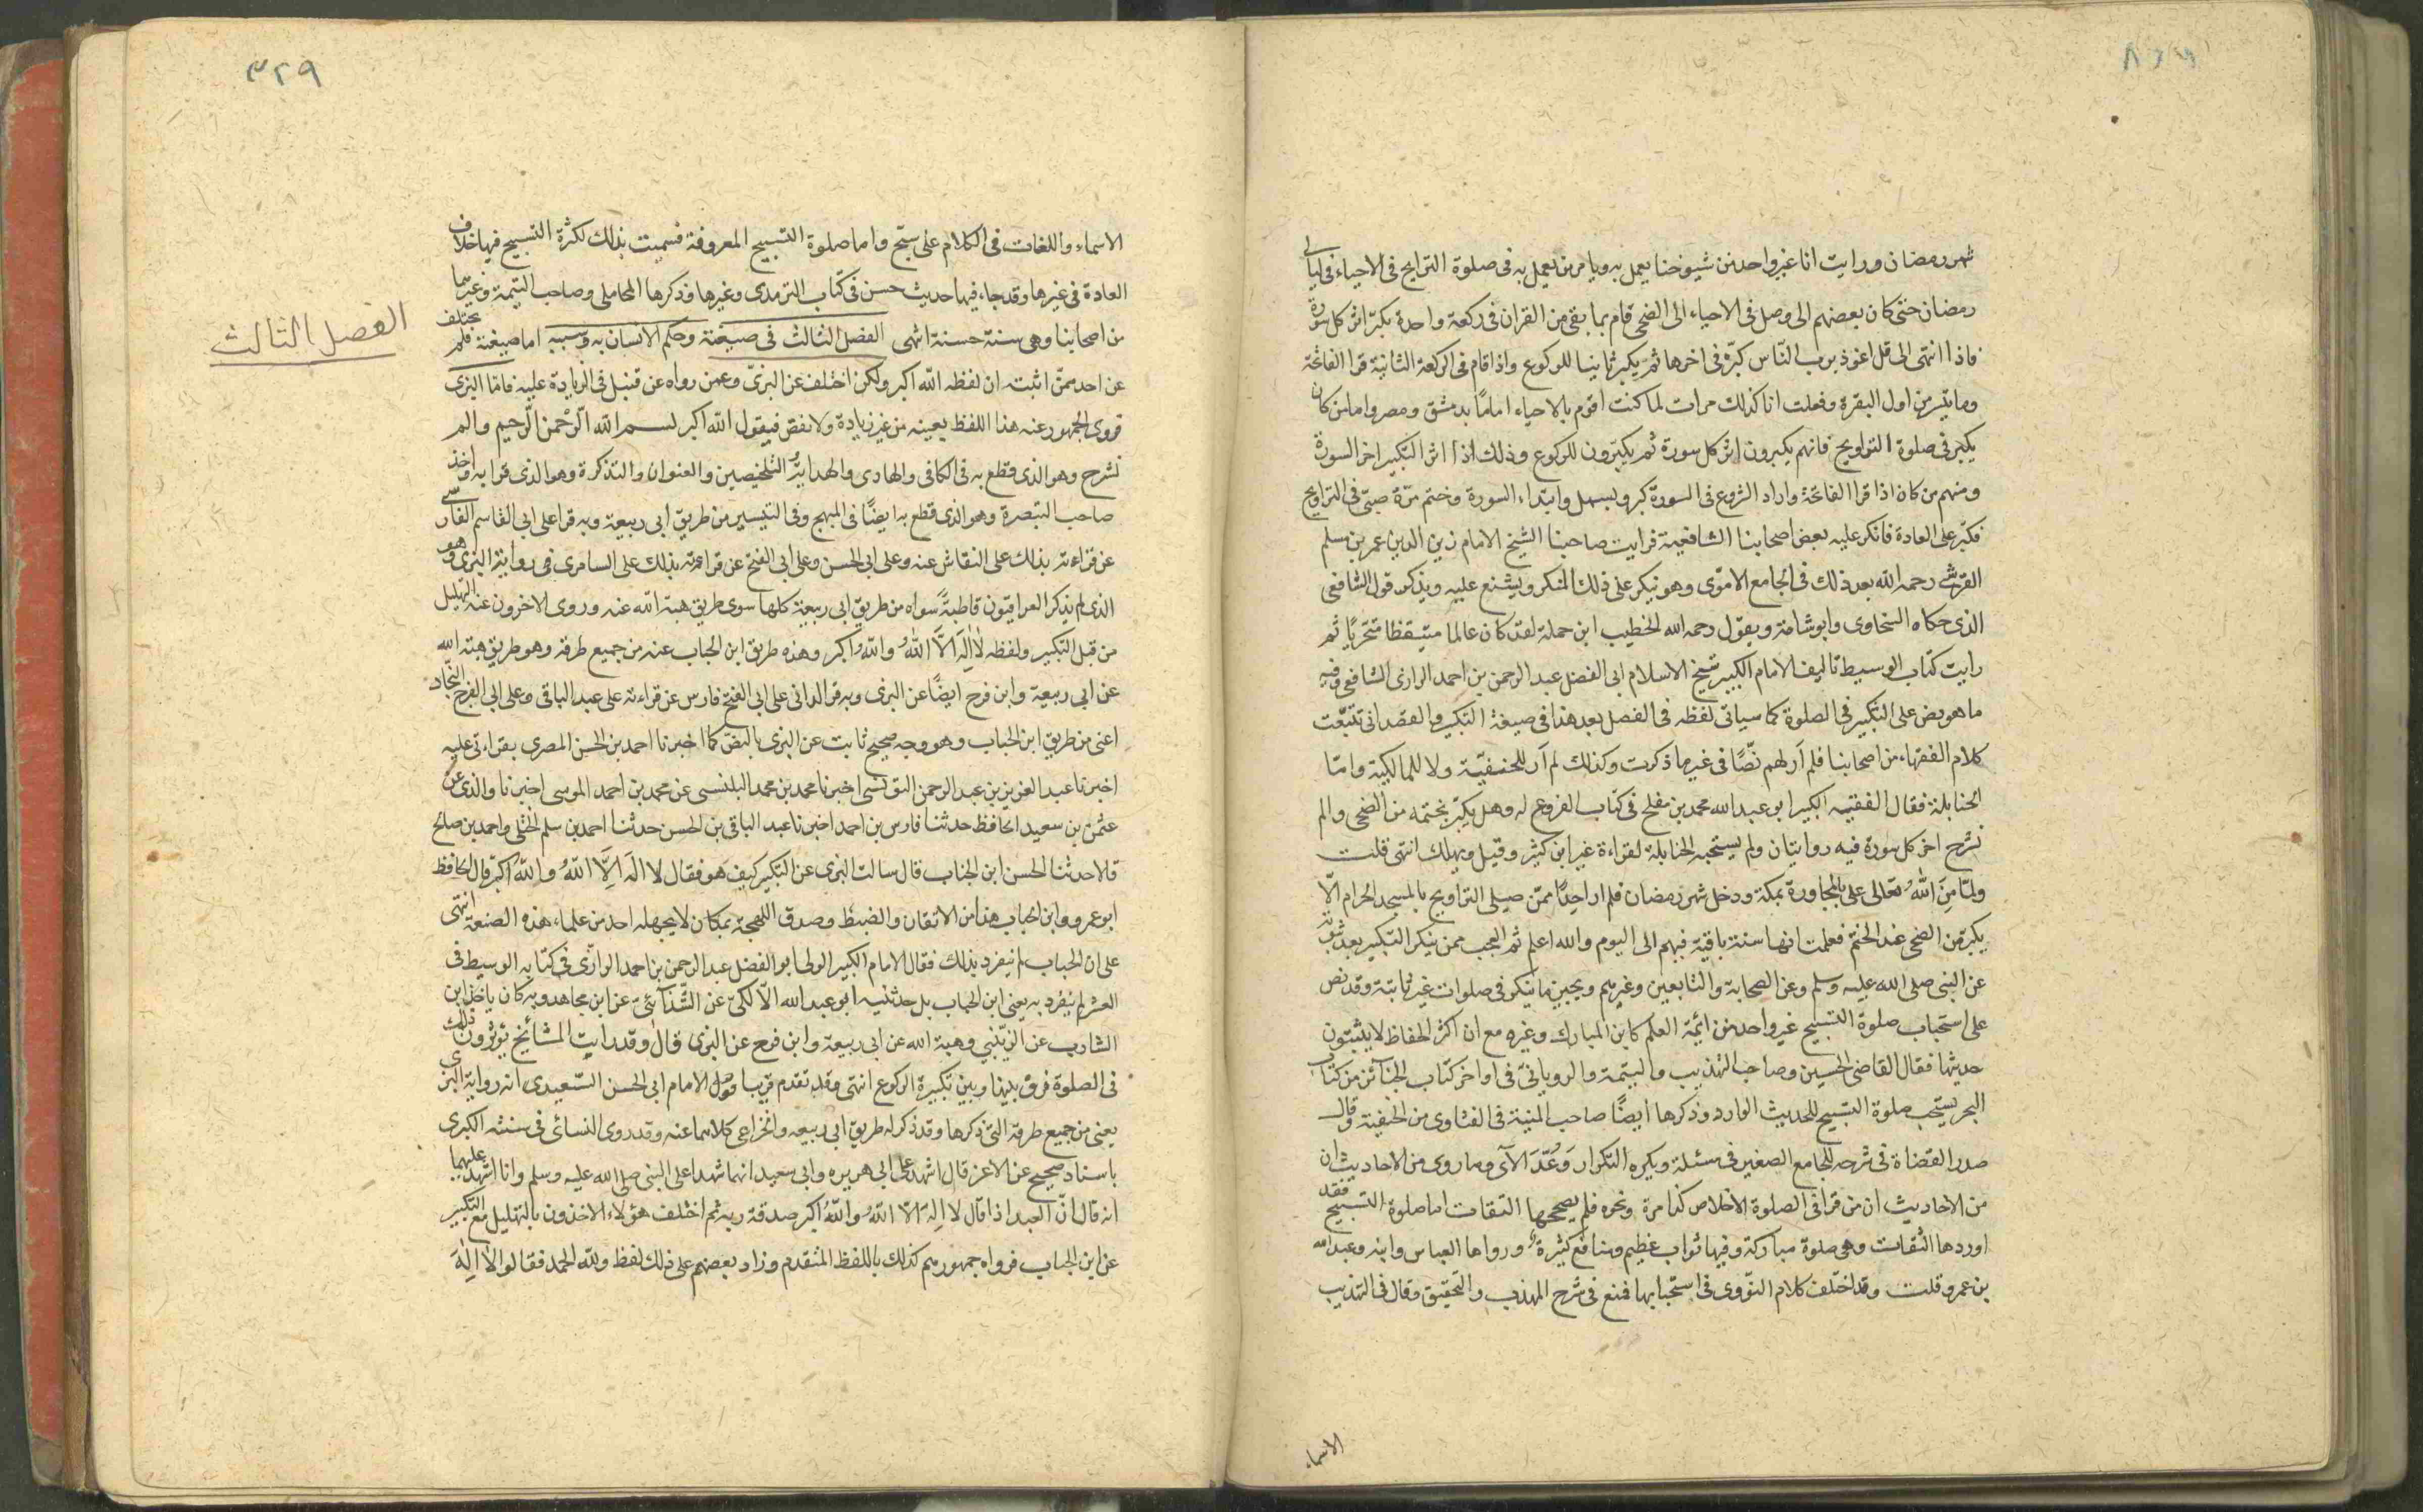 شهر رمضان ورايت انا غير واحد من شيوخنا يعمل به ويامر من يعمل به فى صلوة التراويح فى الاحياء فى ليالى
رمضان حتى كان بعضهم الى وصل فى الاحياء الى الضحى قام بما بقى من القران فى ركعة واحدة يكبر اثر كل سورة
فاذا انتهى الى قل اعوذ برب النّاس كبّر فى اخرها ثم يكبر ثانيا للركوع واذا قام فى الركعة الثانية قرا الفاتحة
وما تيسر من اول البقرة وفعلت انا كذلك مرات لما كنت اقوم بالاحياء امامًا بدمشق ومصر واما من كان
يكبر فى صلوة التراويح فانهم يكبرون اثر كل سورة ثم يكبّرون للركوع وذلك اذا اثر التكبير اخر السورة
ومنهم من كان اذا قرا الفاتحة واراد الشروع فى السورة كبر وبسمل وابتداء السورة وختم مرّة صبىّ فى التراويح
فكبّر على العادة فانكر عليه بعض اصحابنا الشافعية فرايت صاحبنا الشيخ الامام زين الدين عمر بن مسلم
القرشى رحمه الله بعد ذلك فى الجامع الاموّى وهو ينكر على ذلك المنكر ويشنع عليه ويذكر قول الشافعى
الذى حكاه السخاوى وابو شامة ويقول رحم الله الخطيب ابن حملة لقد كان عالما متيقظا متحريًا ثم
رايت كتاب الوسيط تاليف الامام الكبير شيخ الاسلام ابى الفضل عبد الرحمن بن احمد الرازى الشافعى وفيه
ما هو نص على التكبير فى الصلوة كما سياتى لفظه فى الفصل بعد هذا فى صيغة التكبير والقصد انى تتبّعت
كلام الفقهاء من اصحابنا فلم أر لهم نصًّا فى غير ما ذكرت وكذلك لم أر للحنفيّة ولا للمالكية وامّا
الحنابلة فقال الفقيه الكبير ابو عبد الله محمد بن مفلح فى كتاب الفروع له وهل يكبّر بختمه من الضحى والم
نشرح اخر كل سورة فيه روايتان ولم يستحبه الحنابلة لقراءة غير ابن كثير وقيل ويهلك انتهى قلت
ولمّا منَّ اللهُ تعالى على بالمجاورة بمكة ودخل شهر رمضان فلم ار احدًا ممّن صيلى التراويح بالمسجد الحرام الّا
يكبر من الضحى عند الختم فعلمت انها سنة باقية فيهم الى اليوم والله اعلم ثم العجب ممن ينكر التكبير بعد ثبوته
عن النبى صلى الله عليه وسلم وعن الصحابة والتابعين وغيرهم ويجيز ما ينكر فى صلوات غير ثابتة وقد نص
على استحباب صلوة التسبيح غير واحد من ائمة العلم كابن المبارك وغيره مع ان اكثر الحفاظ لا يثبتون
حديثها فقال القاضى الحسين وصاحب التهذيب والتيمة والرويانىّ فى اواخر كتاب الجنائز من كتاب
البحر يستحب صلوة التسبيح للحديث الوارد وذكرها ايضًا صاحب المنية فى الفتاوى من الحنفية وقال
صدر القضاة فى شرحه للجامع الصغير فى مسئلة ويكره التكرار وَعُدّ الآى وما روى من الاحاديث ان
من الاحاديث ان من قرا فى الصلوة الاخلاص كذا مرة ونحوه فلم يصححها الثقات اما صلوة التسبيح فقد
اوردها الثقات وهى صلوة مباركة وفيها ثواب عظيم ومنافع كثيرة ورواها العباس وابنه وعبد الله
بن عمرو قلت وقد اختلف كلام النوّوى فى استحبابها فمنع فى شرح المهذب والتحقيق وقال فى التهذيب
الاسماء
٣٢٩
الاسماء واللغات فى الكلام على سبّح واما صلوة التسبيح المعروفة فسميت بذلك لكثرة التسبيح فيها خلاف
العادة فى غيرها وقد جاء فيها حديث حسن فى كتاب الترمذى وغيرها وذكرها المحاملى وصاحب التتمة وغيرهما
من اصحابنا وهى سنة حسنة انتهى الفصل الثالث فى صيغته وحكم الاتسان به وسببه اما صيغته فلم يختلف
الفصل الثالث
عن احد ممّن اثبته ان لفظه الله اكبر ولكن اختلف عن البزىّ وعمن رواه عن قنبل فى الزيادة عليه فامّا البزى
فروى الجمهور عنه هذا اللفظ بعينه من غير زيادة ولا نقص فيقول الله اكبر بسم الله الرّحمن الرّحيم والم
نشرح وهو الذى قطع به فى الكافى والهادى والهداية والتلخيصين والعنوان والتذكرة وهو الذى قرا به واخذ
صاحب التبصرة وهو الذى قطع به ايضًا فى المبهج وفى التيسير من طريق ابى ربيعة وبه قرا على ابى القاسم الفارسى
عن قراءته بذلك على النقاش عنه وعلى ابى الحسن وعلى ابى الفتح عن قراءته بذلك على السامرى فى رواية البزى وهو
الذى لم يذكر العراقيون قاطبةً سواه من طريق ابى ربيعة كلها سوى طريق هبة الله عنه وروى الاخرون عنه التهليل
من قبل التكبير ولفظه لا اله الّا اللهُ والله اكبر وهذه طريق ابن الحباب عنه من جميع طرقه وهو طريق هبة الله
عن ابى ربيعة وابن فرح ايضًا عن البزى وبه قرا الدانى على ابى الفتح فارس عن قراءته على عبد الباقى وعلى ابى الفرج النجّاد
اعنى من طريق ابن الحباب وهو وجه صحيح ثابت عن البزى بالنصّ كما اخبرنا احمد بن الحسن المصرى بقراءتى عليه
اخبرنا عبد العزيز بن عبد الرحمن التونسى اخبرنا محمد بن محمد البلنسى عن محمد بن احمد الموسى اخبرنا والدى عن
عثمن بن سعيد الحافظ حدثنا فارس بن احمد اخبرنا عبد الباقى بن الحسن حدثنا احمد بن سلم الختلى واحمد بن صالح
قالا حدثنا الحسن ابن الحباب قال سالت البزى عن التكبير كيف هو فقال لا اله الا اللهُ واللهُ اكبر قال الحافظ
ابو عمرو وابن الحباب هذا من الاتقان والضبط وصدق اللهجة بمكان لا يجهله احد من علماء هذه الصنعة انتهى
على ان الحباب لم ينفرد بذلك فقال الامام الكبير الولى ابو الفضل عبد الرحمن بن احمد الرازى فى كتابه الوسيط فى
العشر لم ينفرد به يعنى ابن الحباب بل حدثنيه ابو عبد الله الّالكىّ عن الشّذائىّ عن ابن مجاهد وبه كان ياخذ ابن
الشارب عن الزينبي وهبة الله عن ابى ربيعة وابن فرح عن البزى قال وقد رايت المشائخ يؤثرون ذلك
فى الصلوة فرق بينها وبين تكبيرة الركوع انتهى وقد تقدم قريبا قول الامام ابى الحسن السّعيدى انه رواية البزى
يعنى من جميع طرقه التى ذكرها وقد ذكر له طريق ابى ربيعه والخزاعى كلاهما عنه وقد روى النسائى فى سننه الكبرى
باسناد صحيح عن الاغر قال اشهد على ابى هريره وابى سعيد انهما شهدا على النبى صلى الله عليه وسلم وانا اشهد عليهما
انه قال انّ العبد اذا قال لا اله الّا اللهُ واللهُ اكبر صدقه ربه ثم اختلف هؤلاء الاخذون بالتهليل مع التكبير
عن ابن الحباب فرواه جمهورهم كذلك باللفظ المتقدم وزاد بعضهم على ذلك لفظ ولله الحمد فقالوا لا الهَ